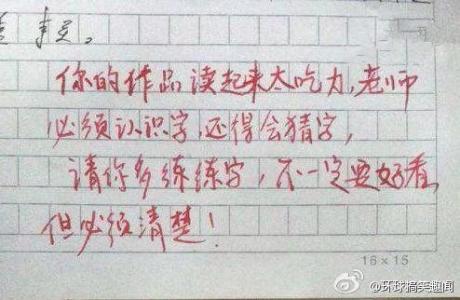 你的作品读起来太吃力,老师
必须认识字,还得会猜字,
请你多练练字,不一定要好看,
但必须清楚!
16×15
@环球搞笑趣闻